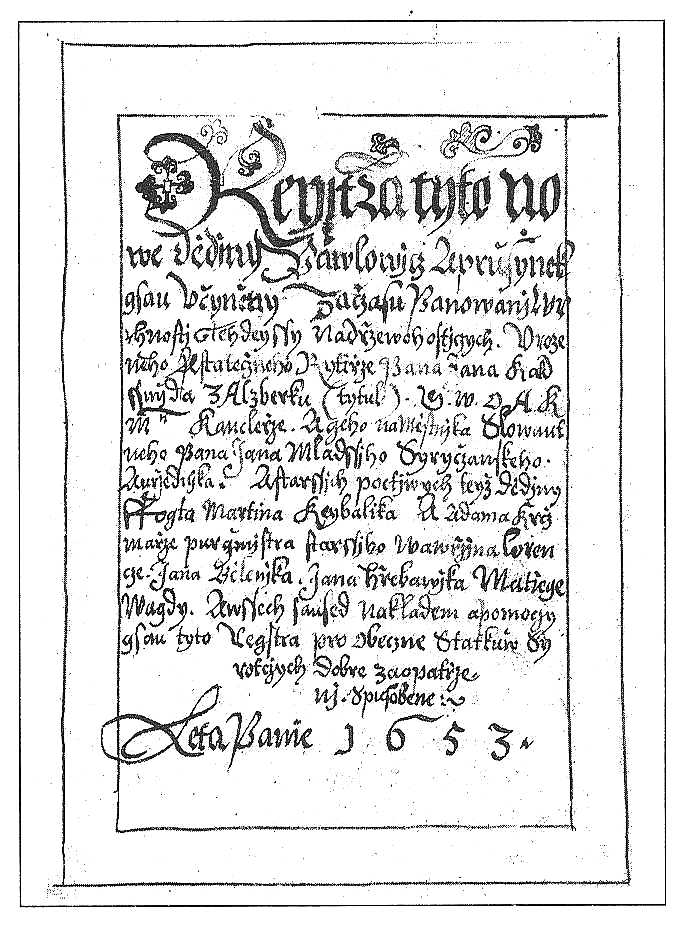 Regstra tyto no
we Dědiny Pawlowicz Apružynek
gsau Včyněny Začasu Panowanj Wr
chnosti Gegich Nadržewohostigych. Vroze
neho Astatečneho Rytirže Pana Jana
z Alzberku (tytul) W. O. A. K.
M Kanclerže. Ageho naMěstnjka Slowaut
neho Pana Jana Mladssyho Syryčanskeho.
Auržednjka. Astarssich poctiwych teyž Dědiny
Ffogta Martina Keybalika A Adama Krč
marže purgmistra starssyho Wawržyna Loren
cze. Jana Bilenjka. Jana Hřebawjka Matiege
Wagdy. Awssech saused nakladem apomoczy
gsau tyto Regstra pro Obeczne Statkuw Sy
rotcjych Dobre zaopatrže
nj. Spusobene
Leta Panie 1653